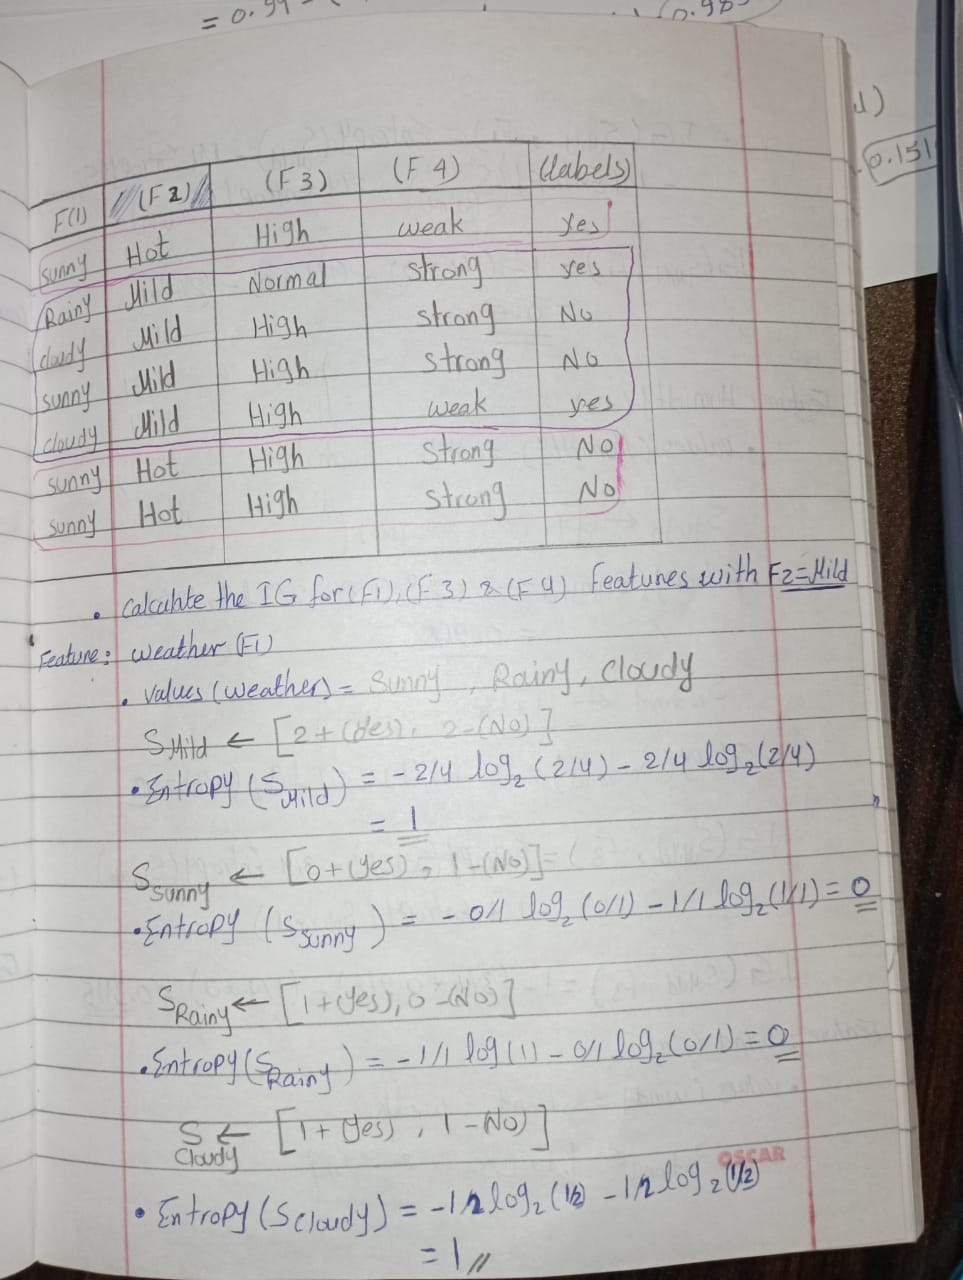 = 0.94
0.98
1)
0.151
F(1) (F 2) (F 3) (F 4) (labels)
sunny Hot High weak yes
Rainy Mild Normal strong yes
cloudy Mild High strong No
sunny Mild High strong No
cloudy Mild High weak yes
sunny Hot High strong No
sunny Hot High strong No
• calculate the IG for (F1), (F 3) & (F 4) features with F2=Mild
Feature: weather (F1)
• values (weather) = Sunny, Rainy, Cloudy
S Mild ← [2+(Yes), 2-(No)]
• Entropy (S Mild) = -2/4 log₂ (2/4) - 2/4 log₂ (2/4)
= 1
S sunny ← [0+(yes), 1-(No)]
• Entropy (S sunny) = -0/1 log₂ (0/1) - 1/1 log₂ (1/1) = 0
S Rainy ← [1+(yes), 0-(No)]
• Entropy (S Rainy) = -1/1 log (1) - 0/1 log₂ (0/1) = 0
S Cloudy ← [1+(yes), 1-No)]
OSCAR
• Entropy (S cloudy) = -1/2 log₂ (1/2) -1/2 log₂ (1/2)
= 1 //